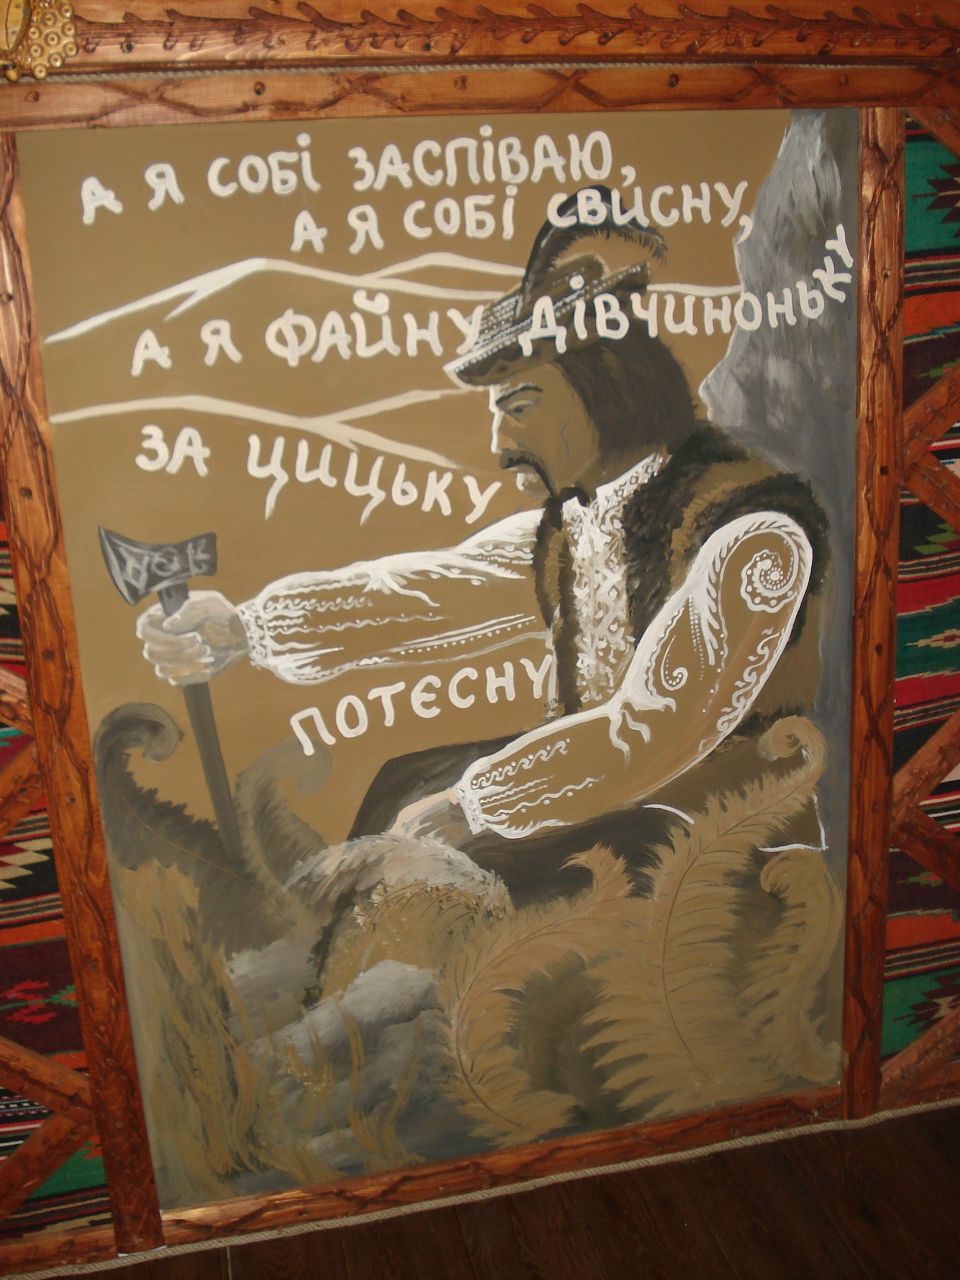 А Я СОБІ ЗАСПІВАЮ,
А Я СОБІ СВИСНУ,
А Я ФАЙНУ ДІВЧИНОНЬКУ
ЗА ЦИЦЬКУ
ПОТЄСНУ